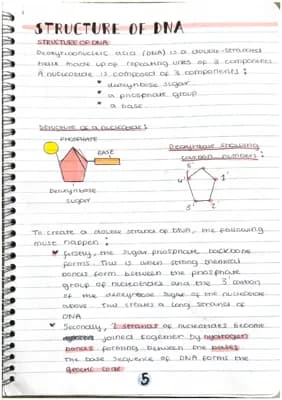 STRUCTURE OF DNA
STRUCTURE OF DNA
Deoxyribonucleic acid (DNA) is a double-stranded
helix made up of repeating units of 3 components.
A nucleotide is composed of 3 components:
deoxyribose sugar
a phosphate group
a base
STRUCTURE OF A NUCLEOTIDE:
PHOSPHATE
BASE
Deoxyribose
sugar
Deoxyribose showing
carbon numbers:
5'
4'
1'
3'
2'
To create a double strand of DNA, the following
must happen:
Firstly, the sugar phosphate backbone
forms. This is when strong chemical
bonds form between the phosphate
group of nucleotides and the 3' carbon
of the deoxyribose sugar of the nucleotide
above. This creates a long strand of
DNA
Secondly, 2 strands of nucleotides become
joined together by hydrogen
bonds forming between the bases
The base sequence of DNA forms the
genetic code
5